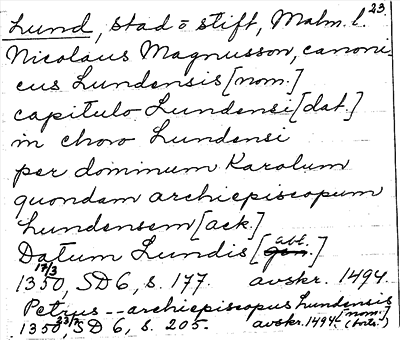 23
Lund, stad o stift, Malm. l.
Nicolaus Magnusson, canoni-
cus Lundensis [nom.]
capitulo Lundensi [dat.]
in choro Lundensi
per dominum Karolum
quondam archiepiscopum
Lundensem [ack.]
Datum Lundis [gen. abl.]
17/3
1350, SD 6, s. 177. avskr. 1494.
Petrus -- archiepiscopus Lundensis [nom.]
1350, SD 6, s. 205. avskr. 1494.